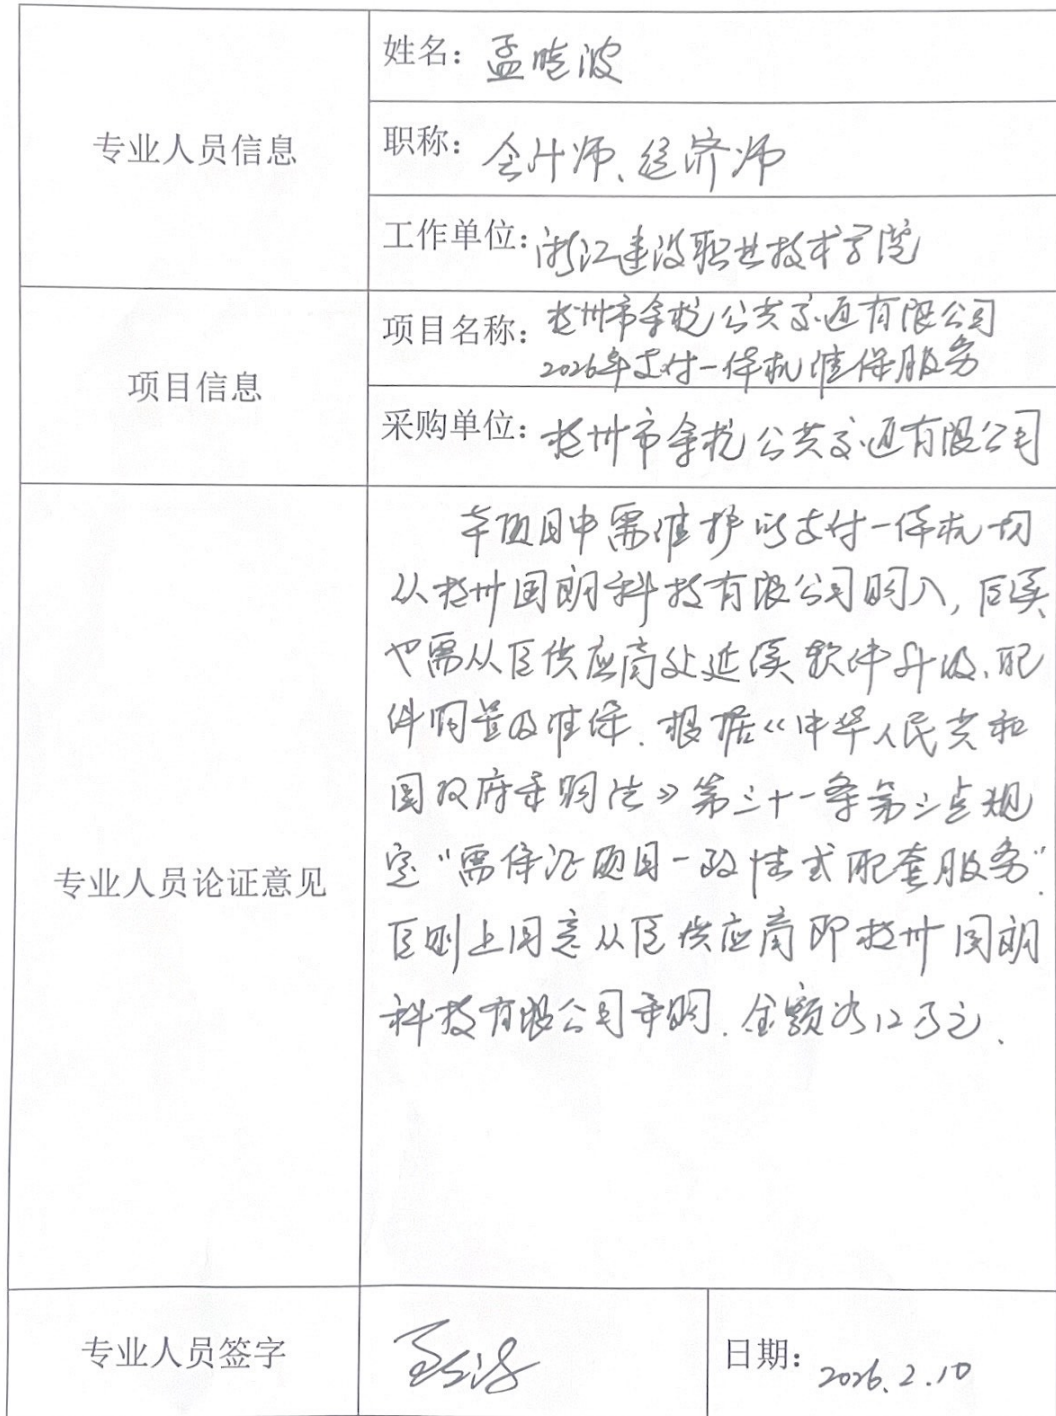 姓名：孟晓波
专业人员信息
职称：会计师、经济师
工作单位：浙江建设职业技术学院
项目信息
项目名称：杭州市余杭公共交通有限公司
2026年支付一体机维保服务
采购单位：杭州市余杭公共交通有限公司
专业人员论证意见
本项目中需维护的支付一体机均
从杭州国朗科技有限公司购入，后续
也需从原供应商处延续软件升级、配
件购置及维保。根据《中华人民共和
国政府采购法》第三十一条第三点规
定“需保证项目一致性或配套服务”，
原则上同意从原供应商即杭州国朗
科技有限公司采购，金额为12万元。
专业人员签字
日期：2026.2.10